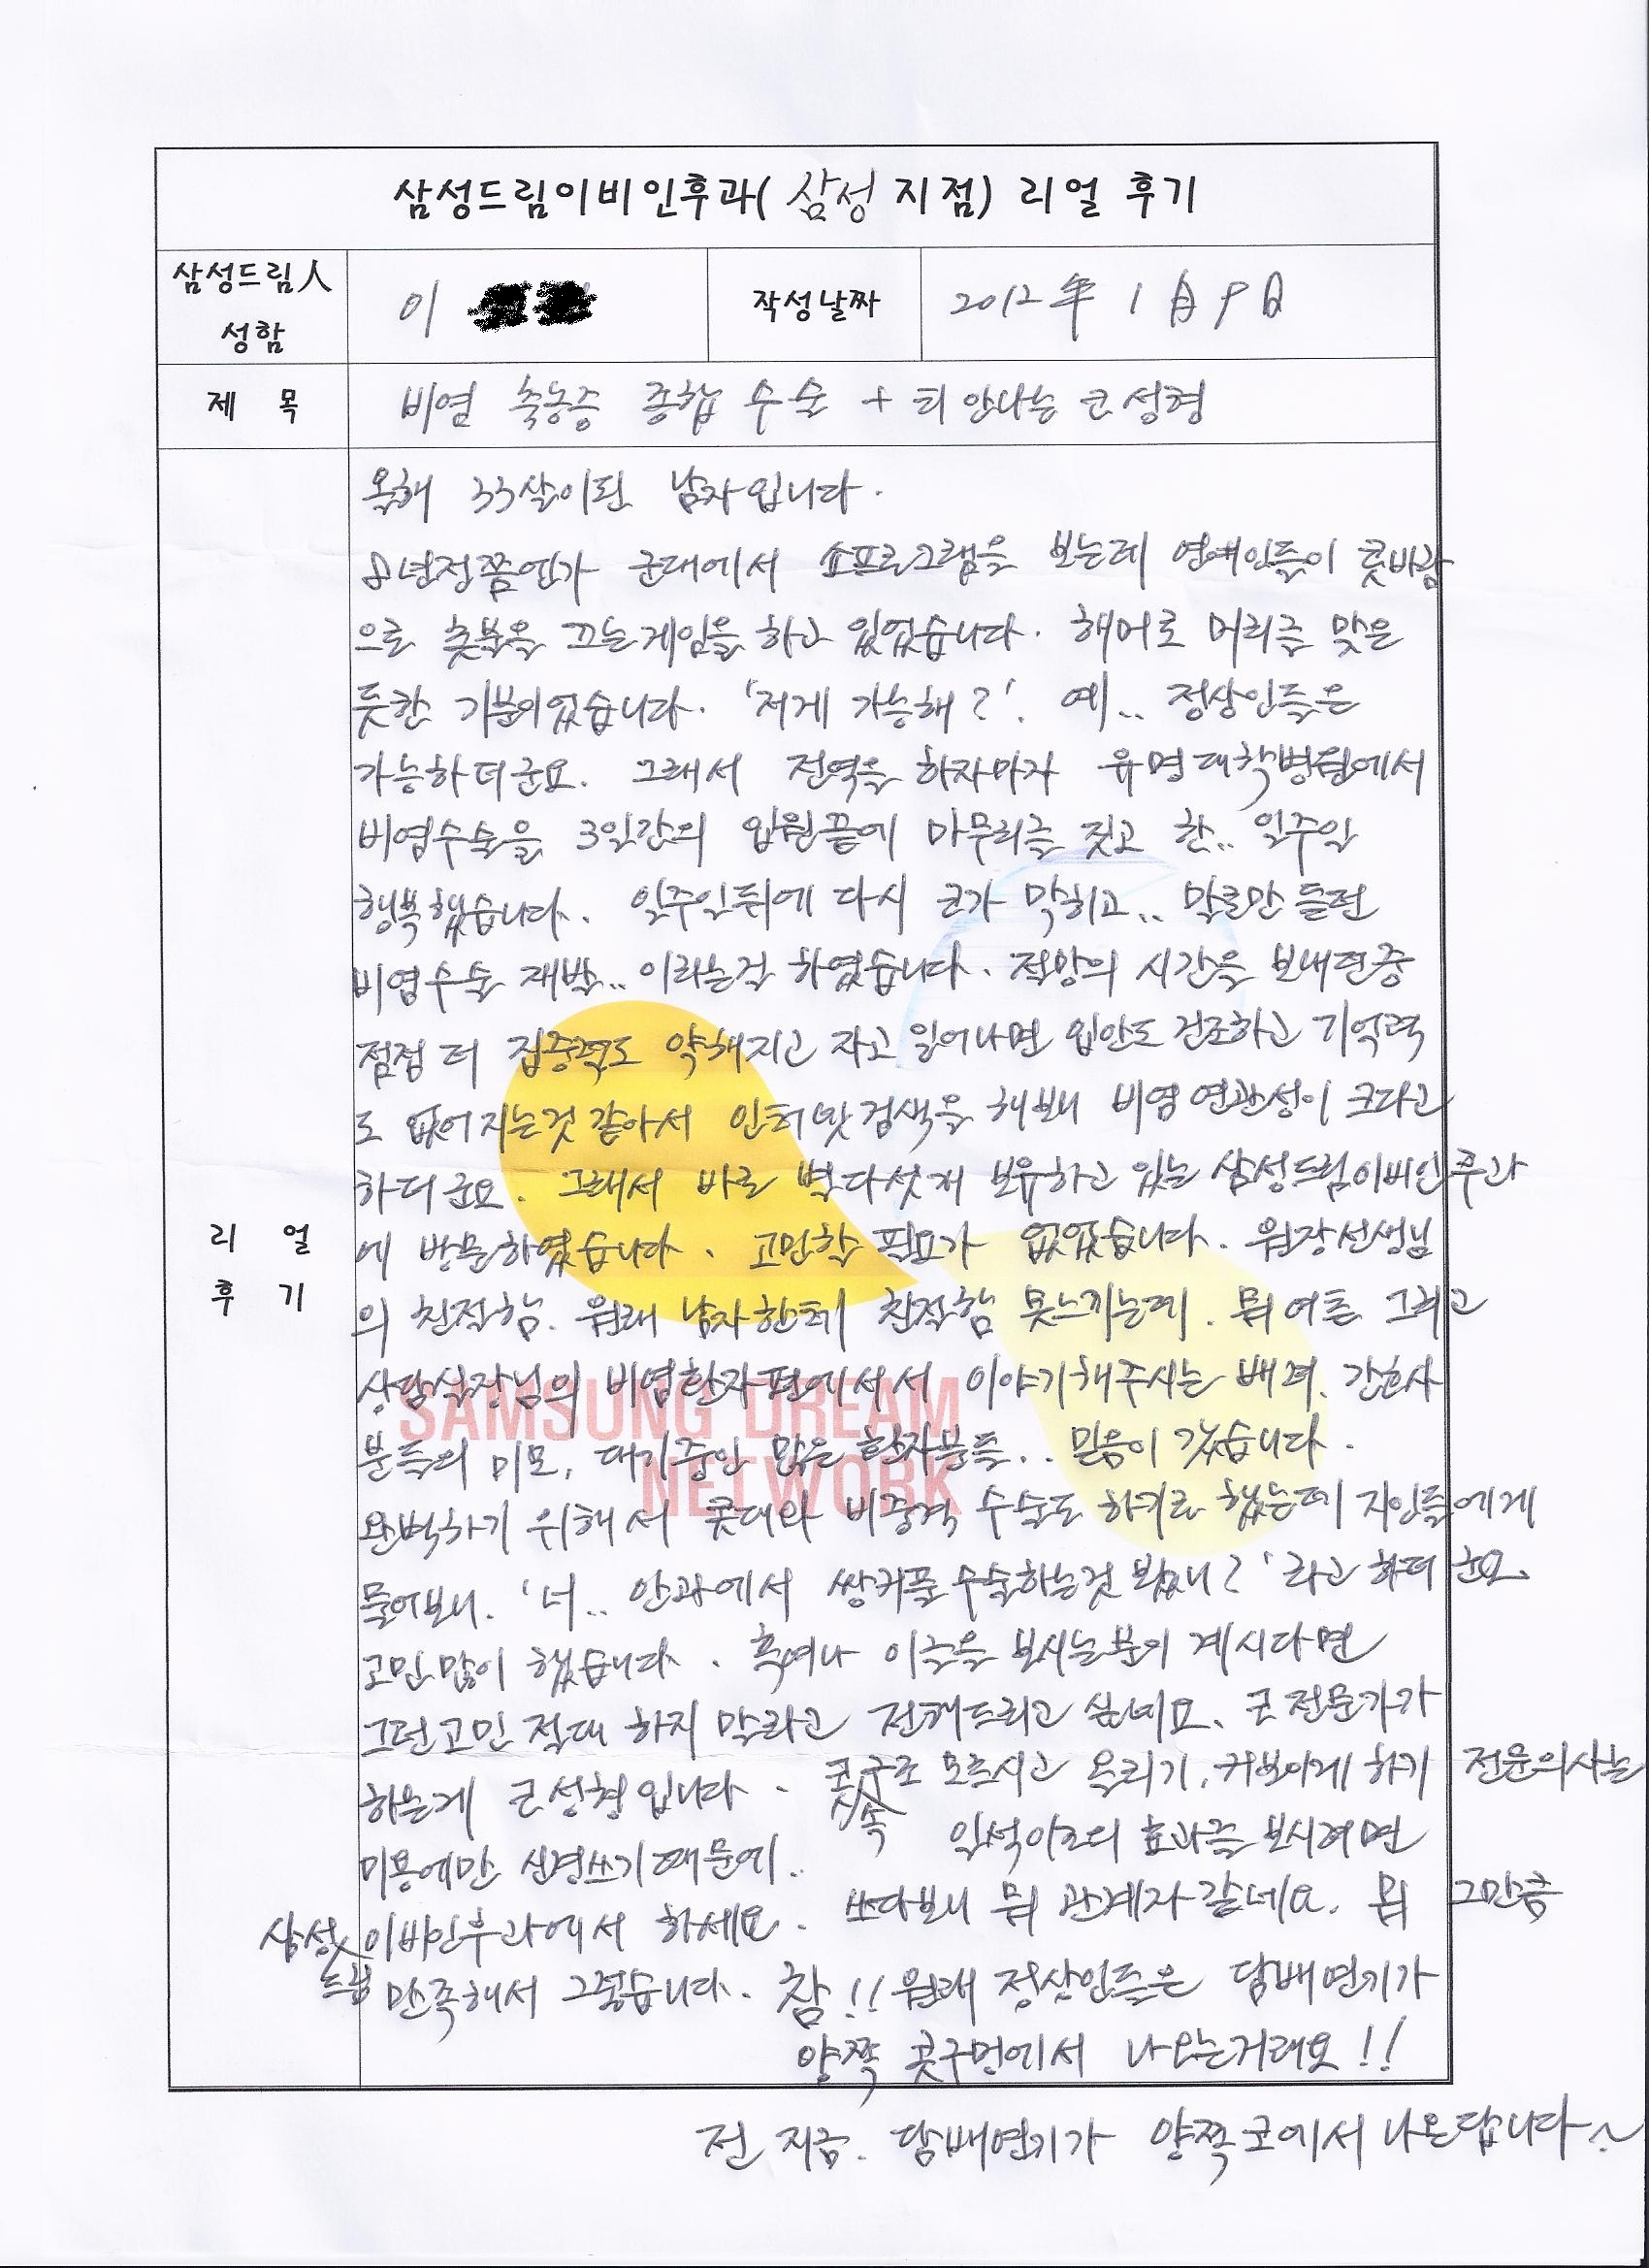 삼성드림이비인후과( 삼성 지점) 리얼 후기
삼성드림人
성함
이
작성날짜
2012年 1月 9日
제 목
비염 축농증 종합 수술 + 티 안나는 코 성형
리 얼
후 기
올해 33살이된 남자입니다.
8년정쯤인가 군대에서 쇼프로그램을 보는데 연예인들이 콧바람
으로 촛불을 끄는게임을 하고 있었습니다. 해머로 머리를 맞은
듯한 기분이었습니다. '저게 가능해?'. 예.. 정상인들은
가능하더군요. 그래서 전역을 하자마자 유명대학병원에서
비염수술을 3일간의 입원끝에 마무리를 짓고 한.. 일주일
행복했습니다. 일주일뒤에 다시 코가 막히고.. 말로만 듣던
비염수술 재발.. 이라는걸 하였습니다. 절망의 시간을 보내던중
점점 더 집중력도 약해지고 자고 일어나면 입안도 건조하고 기억력
도 없어지는것 같아서 인터넷검색을 해보니 비염 연관성이 크다고
하더군요. 그래서 바로 별다섯개 보유하고 있는 삼성드림이비인후과
에 방문하였습니다. 고민할 필요가 없었습니다. 원장선생님
의 친절함. 원래 남자한테 친절함 못느끼는데. 뭐 여튼 그리고
상담실장님의 비염환자편에서서 이야기해주시는 배려. 간호사
분들의 미모, 대기중인 많은 환자분들.. 믿음이 갔습니다.
완벽하기 위해서 콧대와 비중격 수술도 하기로 했는데 지인들에게
물어보니. '너.. 안과에서 쌍커풀수술하는것 봤니?'라고 하더군요.
고민많이 했습니다. 혹여나 이글을 보시는분이 계시다면
그런고민 절대 하지 말라고 전해드리고 싶네요. 코 전문가가
하는게 코성형입니다. 콧속구조 모르시고 올리기, 커보이게 하기 전문의사는
미용에만 신경쓰기때문에.. 일석이조의 효과를 보시려면
삼성드림이비인후과에서 하세요. 쓰다보니 뭐 관계자 같네요. 뭐 그만큼
만족해서 그렇습니다. 참!! 원래 정상인들은 담배연기가
양쪽 콧구멍에서 나오는거래요!!
전 지금. 담배연기가 양쪽코에서 나온답니다~
SAMSUNG DREAM
NETWORK